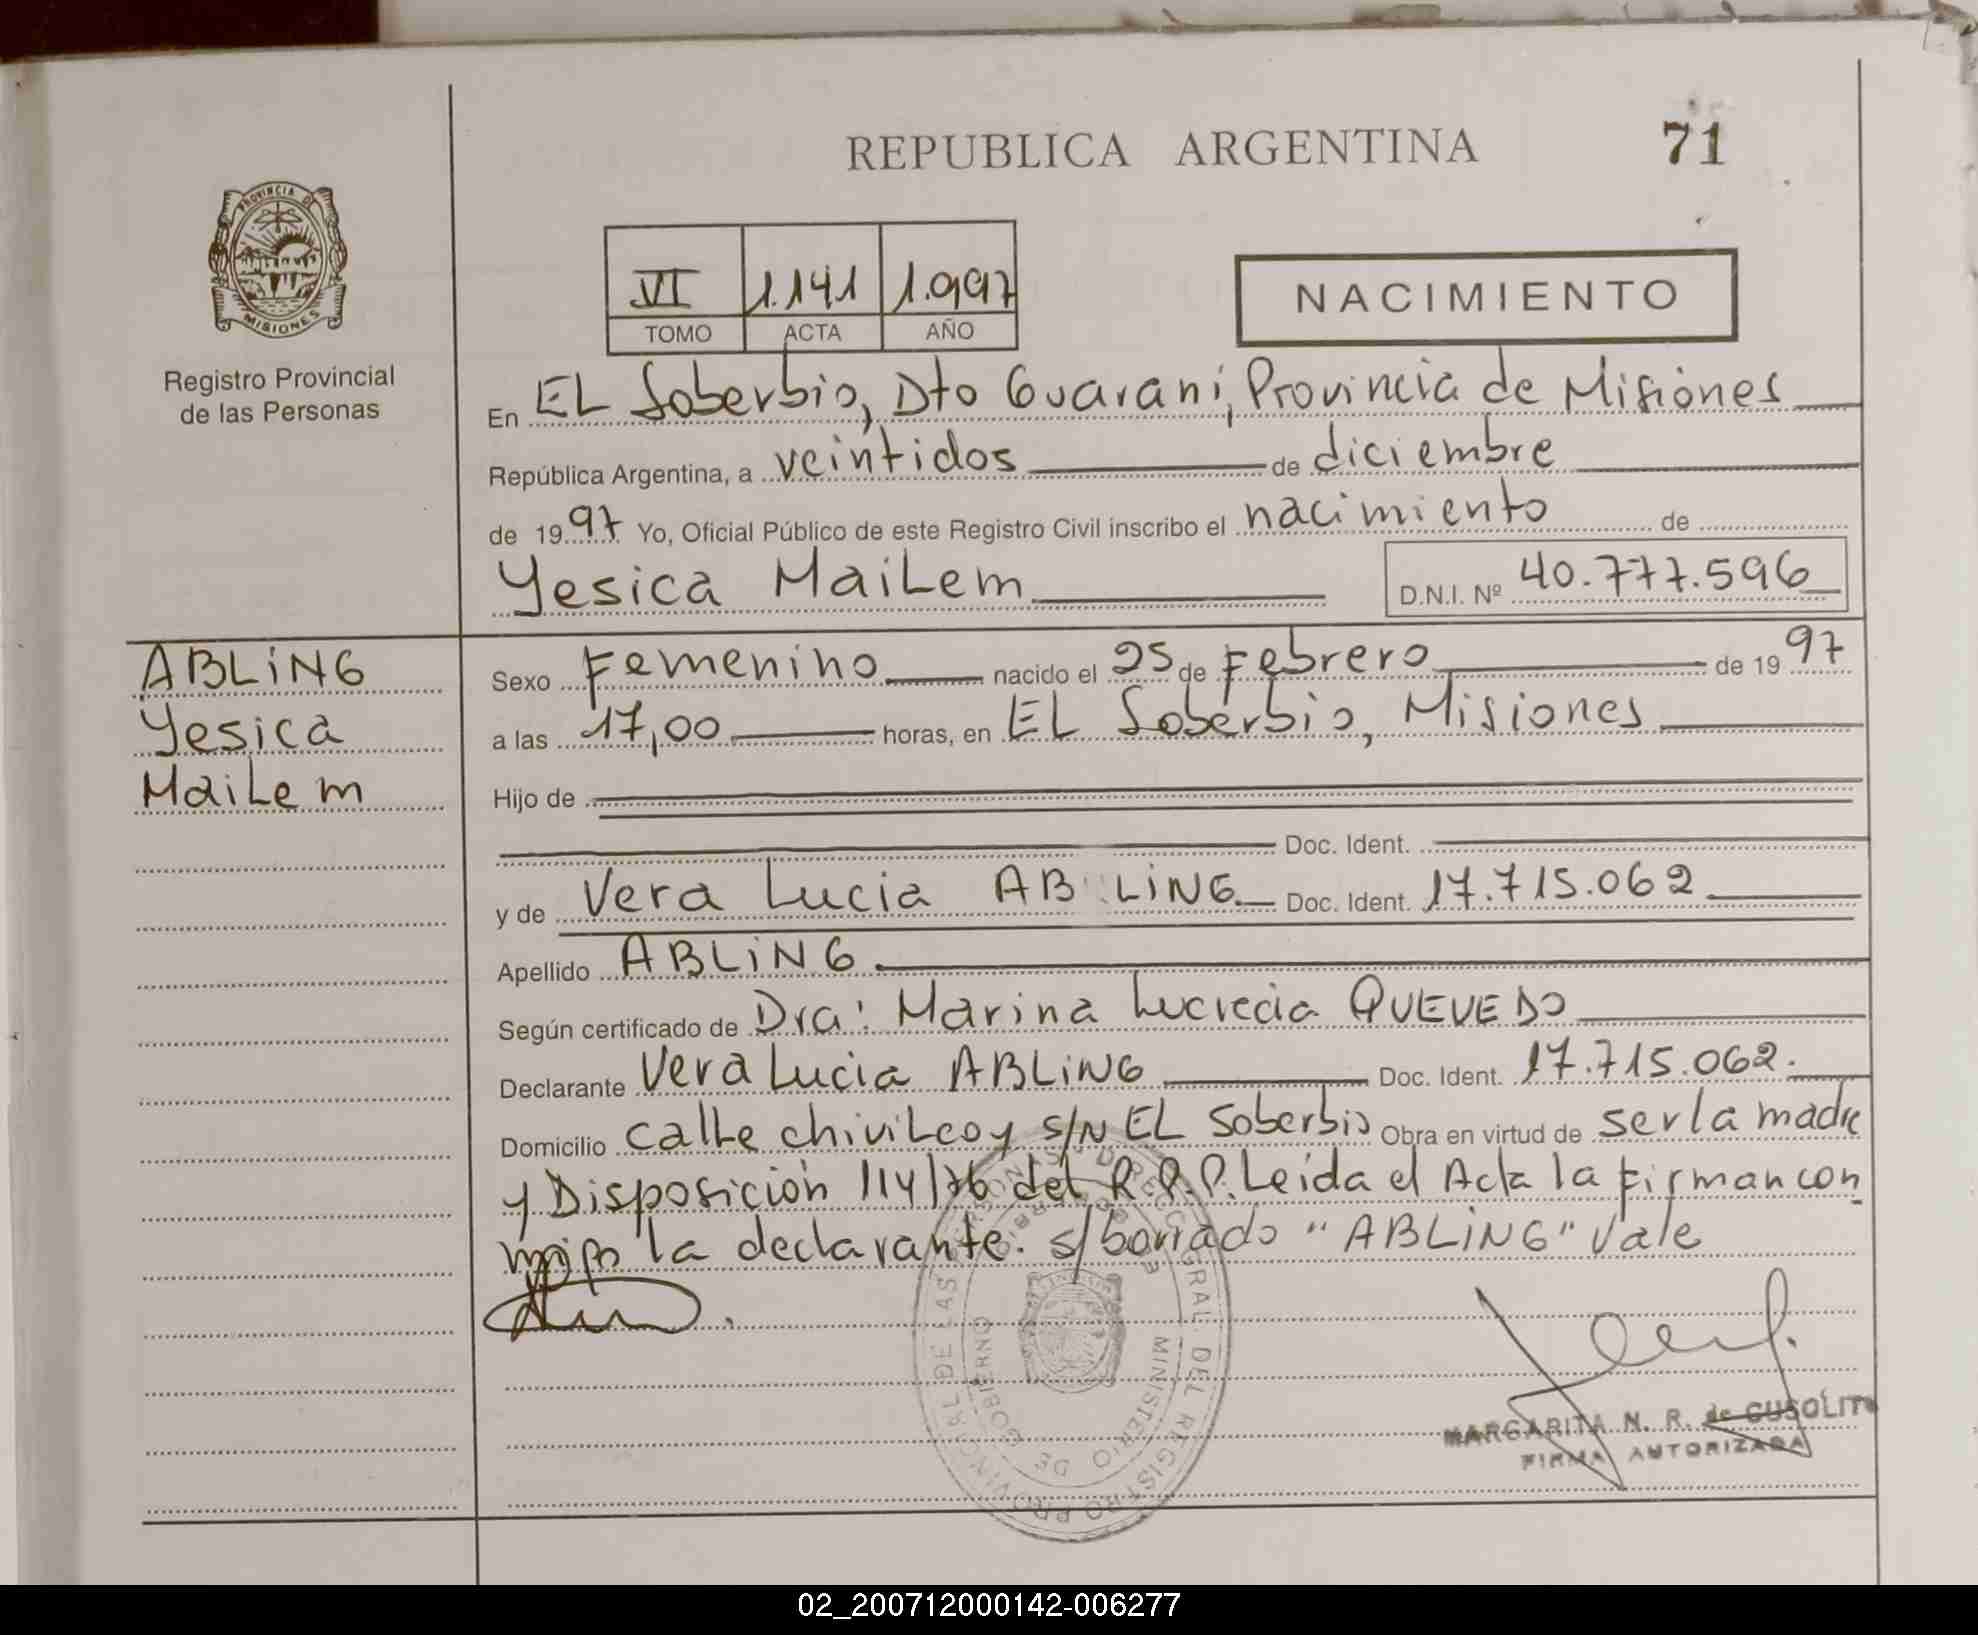 REPUBLICA ARGENTINA
71
PROVINCIA DE
MISIONES
Registro Provincial
de las Personas
VI 1.141 1.997
TOMO ACTA AÑO
NACIMIENTO
En EL Soberbio, Dto Guarani, Provincia de Misiones
República Argentina, a veintidos de diciembre
de 1997 Yo, Oficial Público de este Registro Civil inscribo el nacimiento de
Yesica MaiLem D.N.I. Nº 40.777.596
ABLiNG
Yesica
MaiLem
Sexo Femenino nacido el 25 de Febrero de 1997
a las 17,00 horas, en EL Soberbio, Misiones
Hijo de
Doc. Ident.
y de Vera Lucia ABLiNG Doc. Ident. 17.715.062
Apellido ABLiNG
Según certificado de Dra: Marina Lucrecia QUEVEDO
Declarante Vera Lucia ABLiNG Doc. Ident. 17.715.062.
Domicilio calle chiviLcoy s/N EL Soberbio Obra en virtud de ser la madre
y Disposición 114/76 del R.P.P. Leida el Acta la firman con
migo la declarante. s/borrado "ABLiNG" Vale
DIRECC. GRAL. DEL REGISTRO PROVINCIAL DE LAS PERSONAS
MINISTERIO DE GOBIERNO
MARGARITA N. R. de CUSOLITO
FIRMA AUTORIZADA
02_200712000142-006277